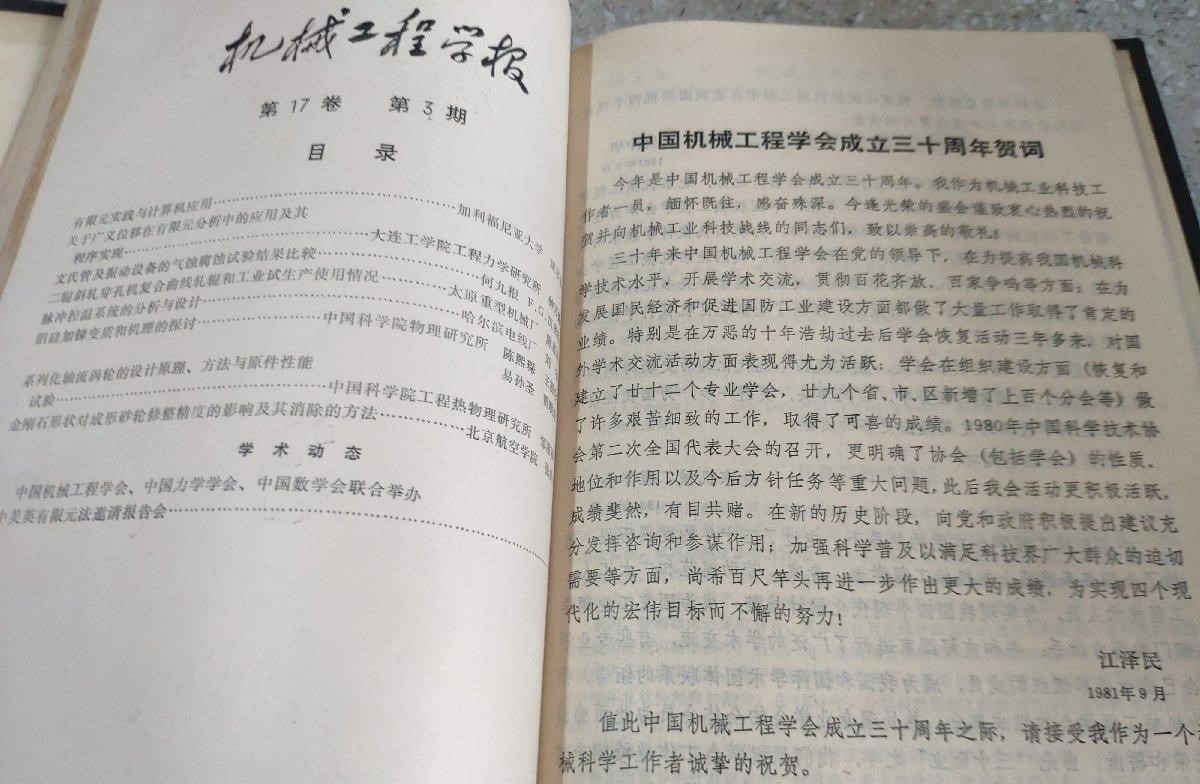 机械工程学报
第17卷 第3期
目录
有限元实践与计算机应用……加利福尼亚大学
关于广义位移在有限元分析中的应用及其
程序实现……大连工学院工程力学研究所
文氏管及振动设备的气蚀腐蚀试验结果比较……何九根 F.G.
二辊斜轧穿孔机复合曲线轧辊和工业试生产使用情况……太原重型机械厂
脉冲控温系统的分析与设计……哈尔滨电线厂
铝硅加锑变质和机理的探讨……中国科学院物理研究所 陈熙琛
易孙圣
系列化轴流涡轮的设计原理、方法与原件性能
试验……中国科学院工程热物理研究所
金刚石形状对成形砂轮修整精度的影响及其消除的方法……北京航空学院
学术动态
中国机械工程学会、中国力学学会、中国数学会联合举办
中美英有限元法邀请报告会……
中国机械工程学会成立三十周年贺词
今年是中国机械工程学会成立三十周年。我作为机械工业科技工
作者一员，缅怀既往，感奋殊深。今逢光荣的盛会谨致衷心热烈的祝
贺并向机械工业科技战线的同志们，致以崇高的敬礼！
三十年来中国机械工程学会在党的领导下，在为提高我国机械科
学技术水平，开展学术交流，贯彻百花齐放、百家争鸣等方面；在为
发展国民经济和促进国防工业建设方面都做了大量工作取得了肯定的
业绩。特别是在万恶的十年浩劫过去后学会恢复活动三年多来，对国
外学术交流活动方面表现得尤为活跃；学会在组织建设方面（恢复和
建立了廿十二个专业学会，廿九个省、市、区新增了上百个分会等）做
了许多艰苦细致的工作，取得了可喜的成绩。1980年中国科学技术协
会第二次全国代表大会的召开，更明确了协会（包括学会）的性质、
地位和作用以及今后方针任务等重大问题，此后我会活动更积极活跃，
成绩斐然，有目共赌。在新的历史阶段，向党和政府积极提出建议充
分发挥咨询和参谋作用；加强科学普及以满足科技界广大群众的迫切
需要等方面，尚希百尺竿头再进一步作出更大的成绩，为实现四个现
代化的宏伟目标而不懈的努力！
江泽民
1981年9月
值此中国机械工程学会成立三十周年之际，请接受我作为一个
械科学工作者诚挚的祝贺。